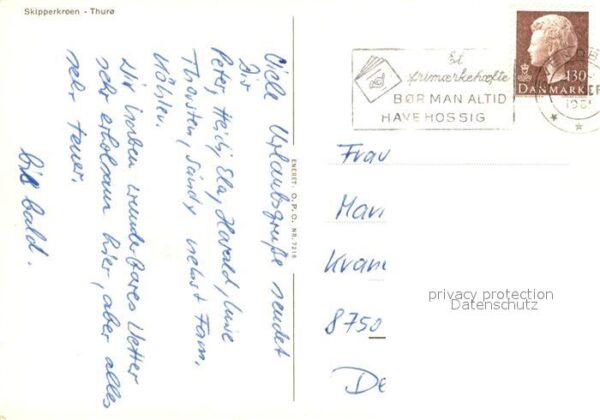 Skipperkroen - Thurø
Viele Urlaubsgrüße sendet
Dir
Peter, Heidi, Ela, Harald,
Thorsten, Sandy nebst Fam.
Wir haben wunderbares Wetter
sehr erholsam hier, aber alles
sehr teuer.
Bis bald.
ENERET: O. P. O. NR. 7218
Et
frimærkehæfte
BØR MAN ALTID
HAVE HOS SIG
1981
130
DANMARK
Frau
Mari
Kram
8750
De
privacy protection
Datenschutz